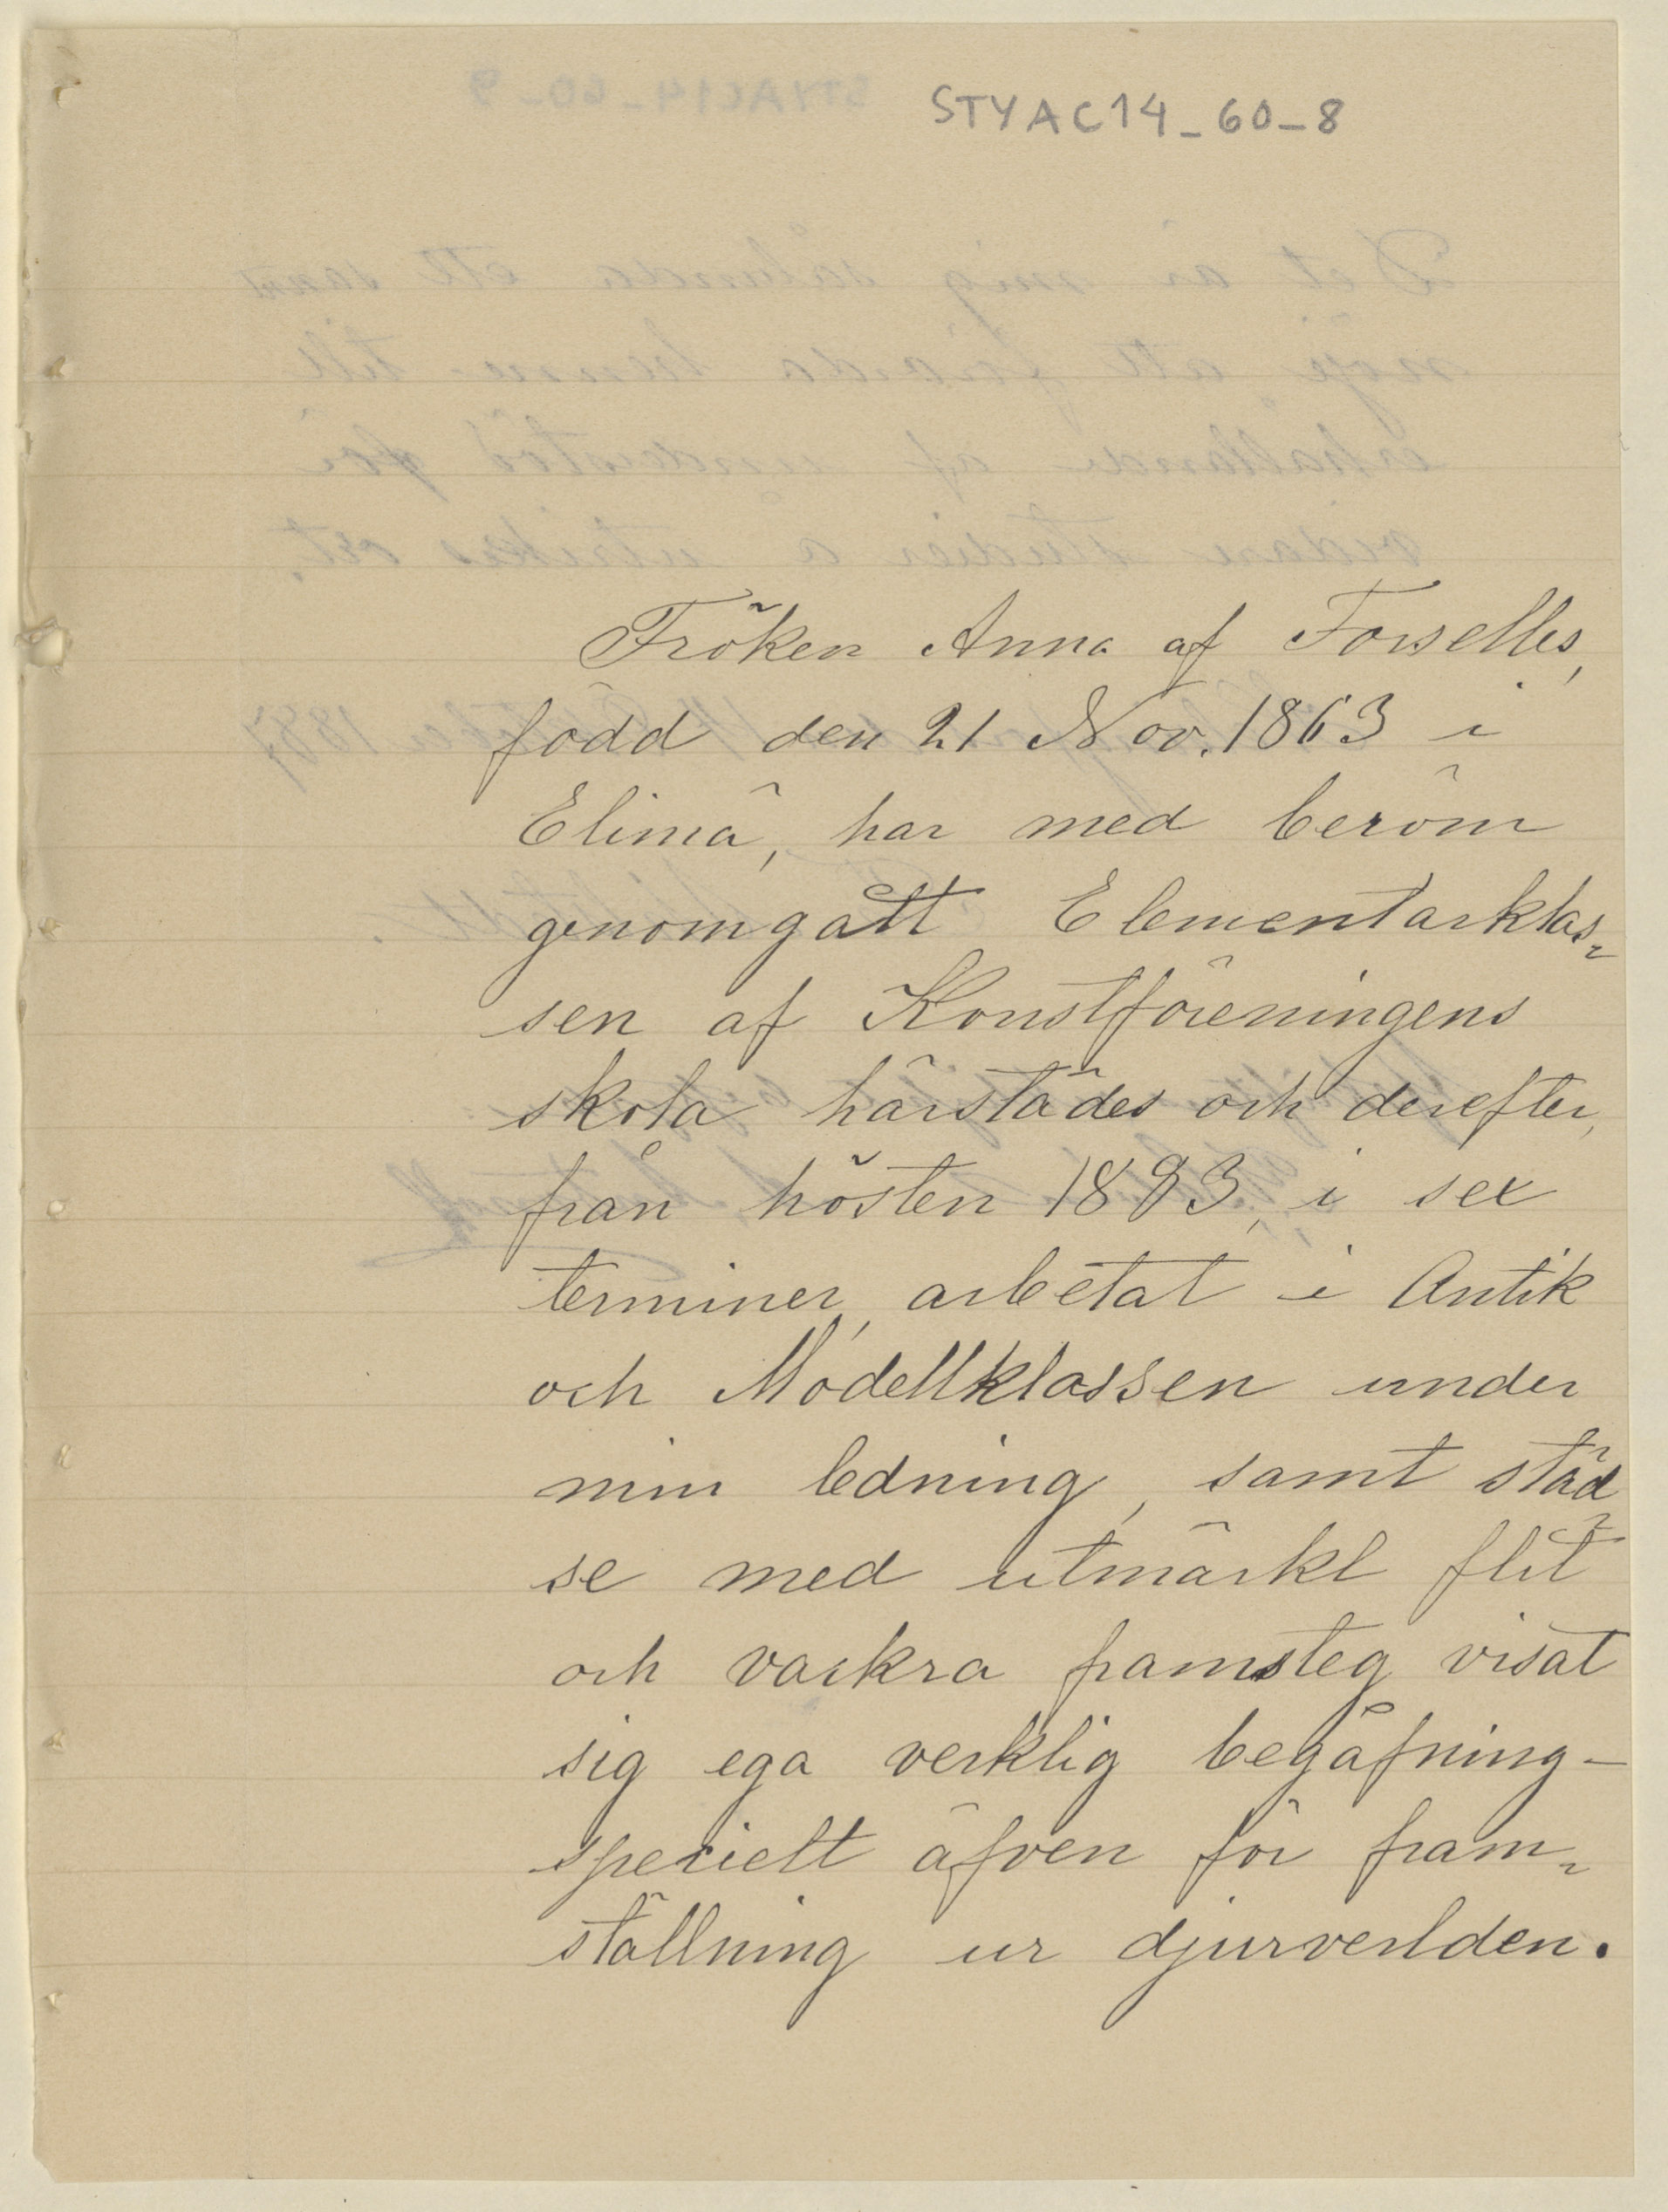 STYAC14_60_8
Fröken Anna af Forselles,
född den 21 Nov. 1863 i
Elimä, har med beröm
genomgått Elementarklas=
sen af Konstföreningens
skola härstädes och derefter,
från hösten 1883, i sex
terminer, arbetat i Antik
och Modellklassen under
min ledning, samt städ=
se med utmärkt flit
och vackra framsteg visat
sig ega verklig begåfning –
specielt äfven för fram=
ställning ur djurverlden.